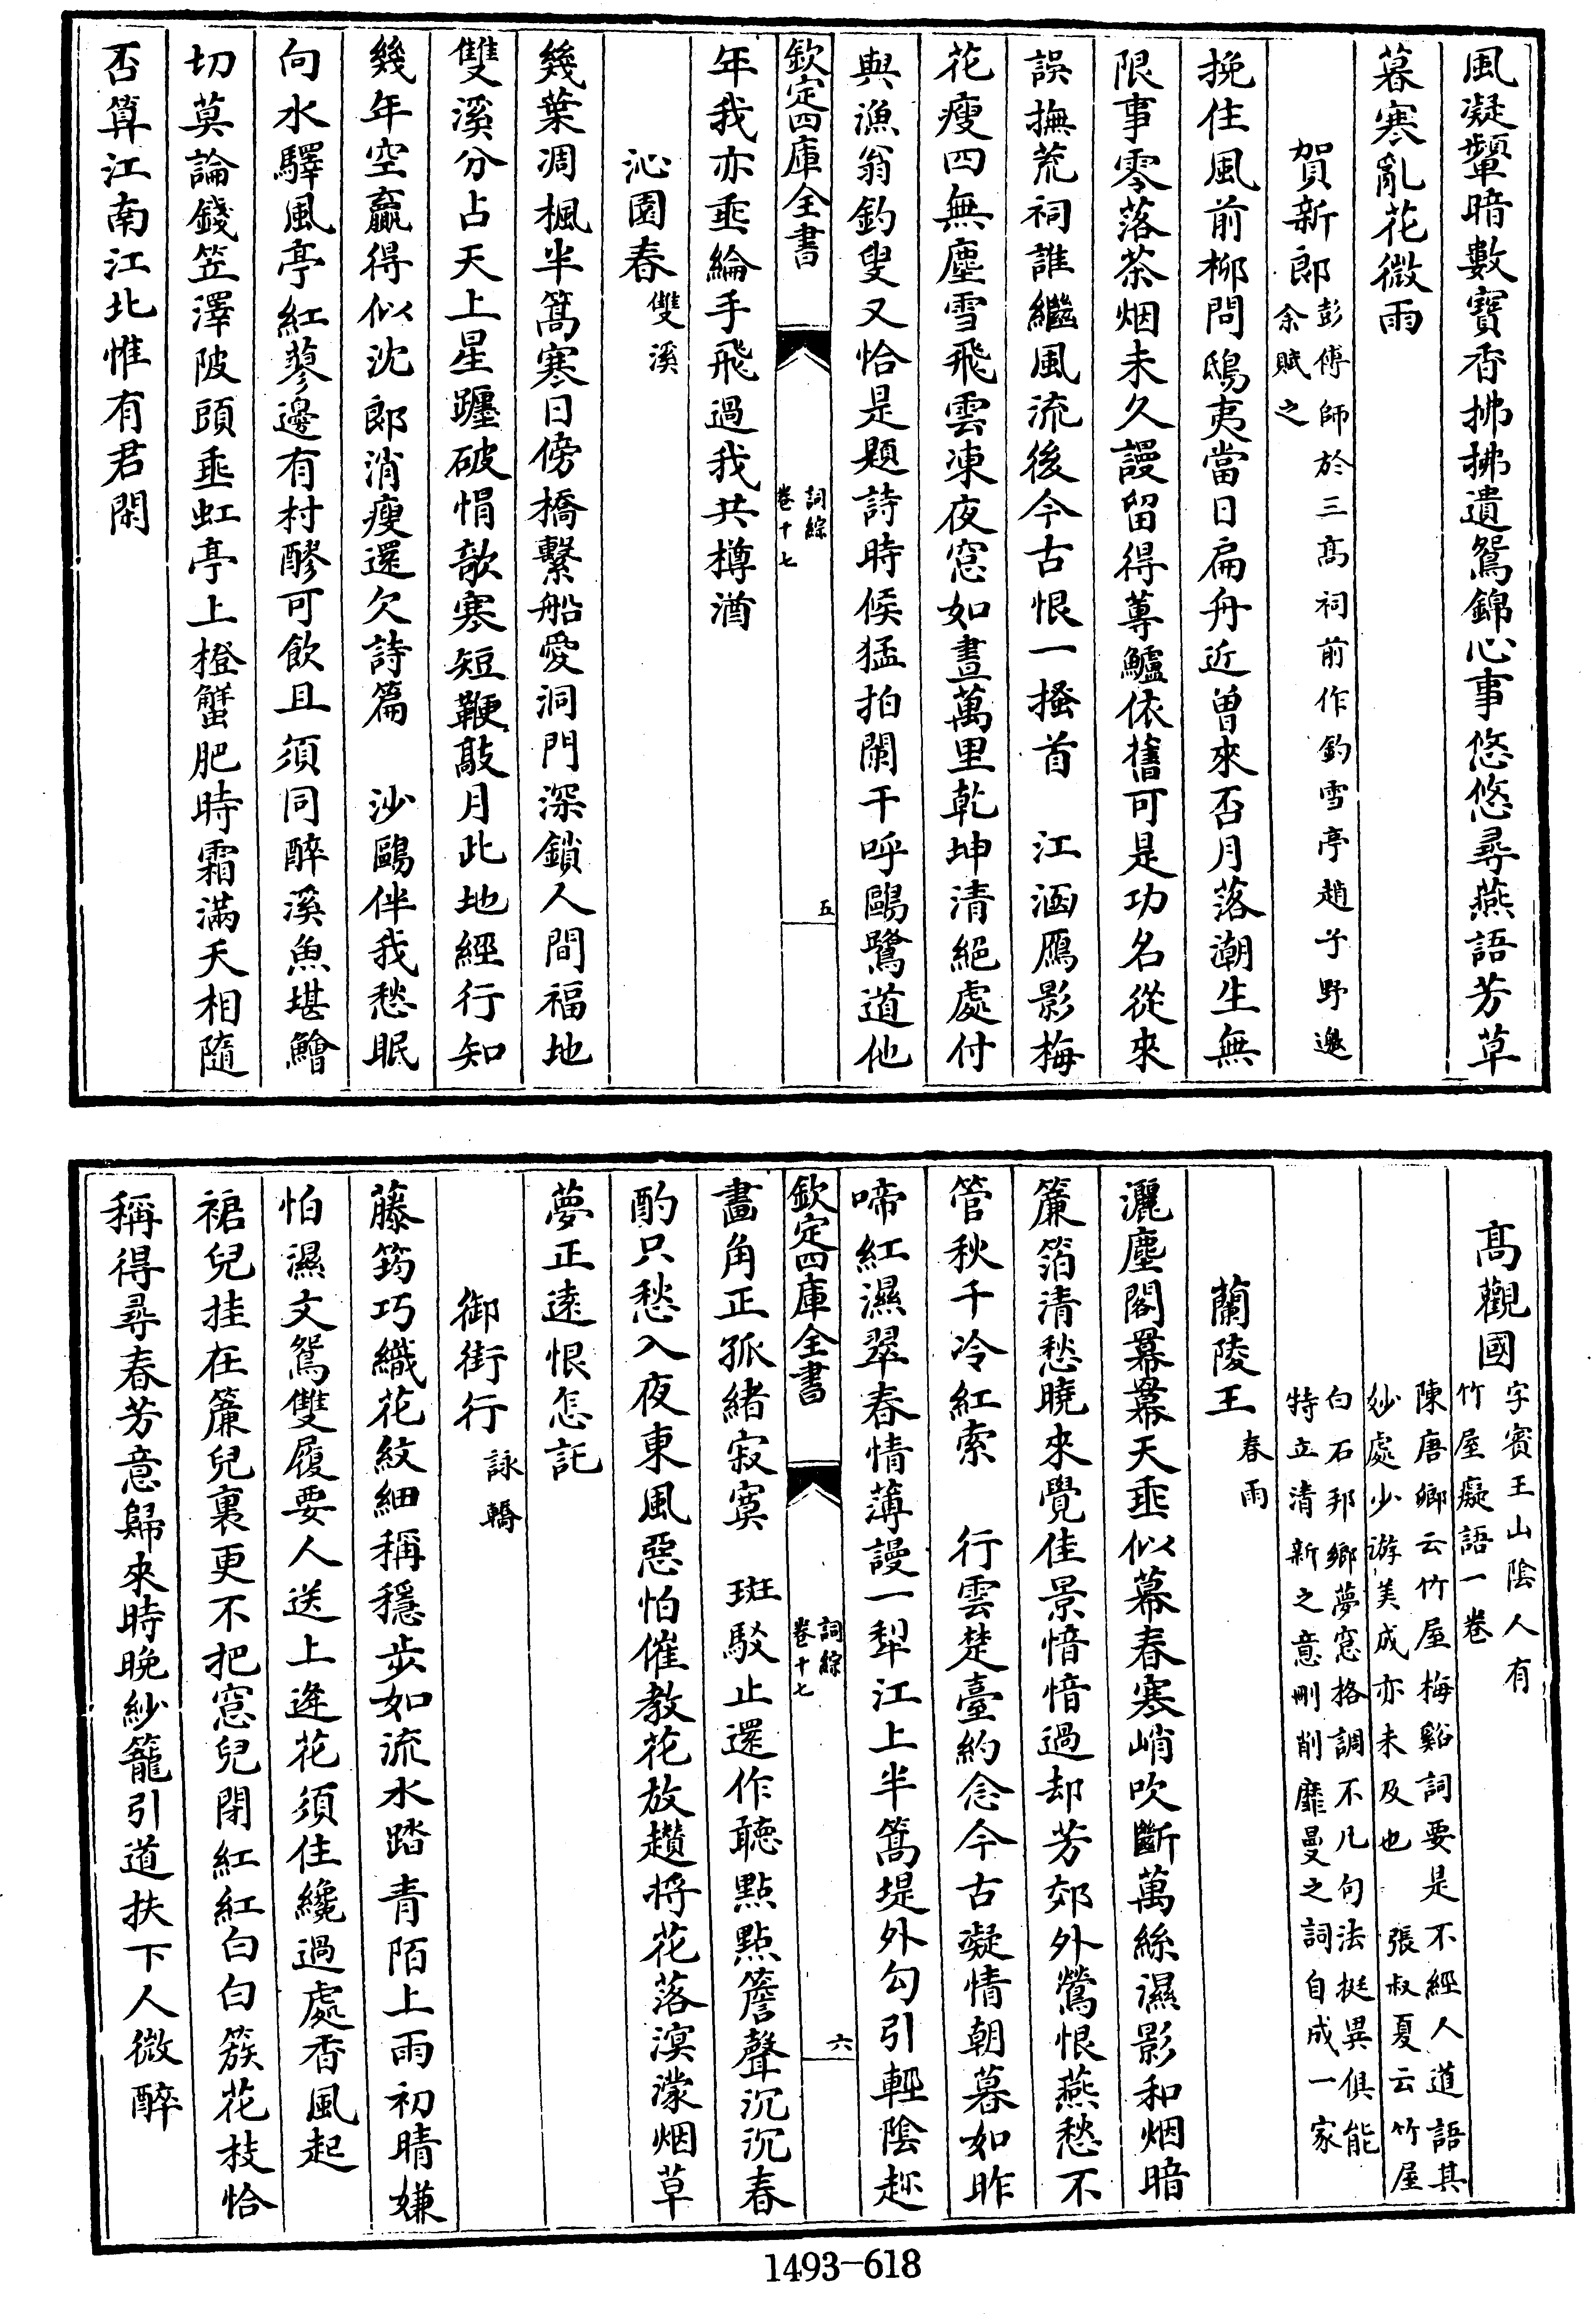 風凝顰暗數寳香拂拂遺鴛錦心事悠悠尋燕語芳草
暮寒亂花微雨
賀新郎彭傅師於三髙祠前作釣雪亭趙子野邀
余賦之
挽住風前柳問鴟夷當日扁舟近曽來否月落潮生無
限事零落茶烟未久謾留得蓴鱸依舊可是功名從來
誤撫荒祠誰繼風流後今古恨一搔首　江涵鴈影梅
花瘦四無塵雪飛雲凍夜窓如晝萬里乾坤清絕處付
與漁翁釣叟又恰是題詩時候猛拍闌干呼鷗鷺道他
欽定四庫全書
詞綜
卷十七
五
年我亦垂綸手飛過我共樽酒
沁園春雙溪
幾葉凋楓半篙寒日傍橋繫船愛洞門深鎖人間福地
雙溪分占天上星躔破㡌欹寒短鞭敲月此地經行知
幾年空贏得似沈郎消瘦還欠詩篇　沙鷗伴我愁眠
向水驛風亭紅蓼邊有村醪可飲且須同醉溪魚堪鱠
切莫論錢笠澤陂頭垂虹亭上橙蟹肥時霜滿天相隨
否算江南江北惟有君閑
髙觀國字賓王山隂人有
竹屋癡語一卷
陳唐卿云竹屋梅谿詞要是不經人道語其
妙處少游美成亦未及也　張叔夏云竹屋
白石邦卿夢窓格調不凡句法挺異俱能
特立清新之意刪削靡曼之詞自成一家
蘭陵王春雨
灑塵閣冪冪天垂似幕春寒峭吹斷萬絲濕影和烟暗
簾箔清愁曉來覺佳景愔愔過却芳郊外鶯恨燕愁不
管秋千冷紅索　行雲楚臺約念今古凝情朝暮如昨
啼紅濕翠春情薄謾一犁江上半篙堤外勾引輕隂趂
欽定四庫全書
詞綜
卷十七
六
畫角正孤緒寂寞　斑駁止還作聽點點簷聲沉沉春
酌只愁入夜東風惡怕催教花放趲將花落溟濛烟草
夢正逺恨怎託
御街行詠轎
藤筠巧織花紋細稱穩步如流水踏青陌上雨初晴嫌
怕濕文鴛雙履要人送上逢花須住纔過處香風起
裙兒挂在簾兒裏更不把窓兒閉紅紅白白簇花枝恰
稱得尋春芳意歸來時晚紗籠引道扶下人微醉
1493-618